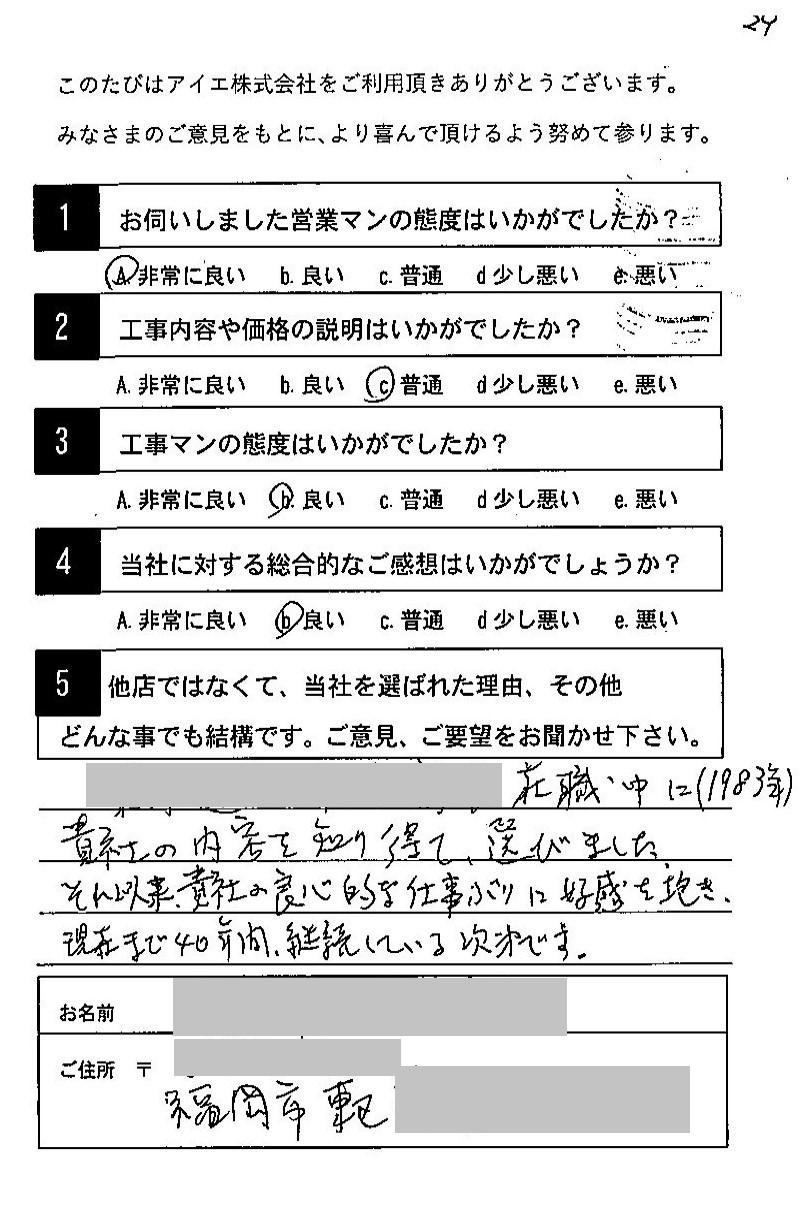 24
このたびはアイエ株式会社をご利用頂きありがとうございます。
みなさまのご意見をもとに、より喜んで頂けるよう努めて参ります。
1 お伺いしました営業マンの態度はいかがでしたか？
A. 非常に良い b. 良い c. 普通 d 少し悪い e. 悪い
2 工事内容や価格の説明はいかがでしたか？
A. 非常に良い b. 良い c. 普通 d 少し悪い e. 悪い
3 工事マンの態度はいかがでしたか？
A. 非常に良い b. 良い c. 普通 d 少し悪い e. 悪い
4 当社に対する総合的なご感想はいかがでしょうか？
A. 非常に良い b. 良い c. 普通 d 少し悪い e. 悪い
5 他店ではなくて、当社を選ばれた理由、その他
どんな事でも結構です。ご意見、ご要望をお聞かせ下さい。
在職中に(1983年)
貴社の内容を知り得て、選びました
それ以来、貴社の良心的な仕事ぶりに好感を抱き、
現在まで40年間、継続している次第です。
お名前
ご住所 〒
福岡市東区